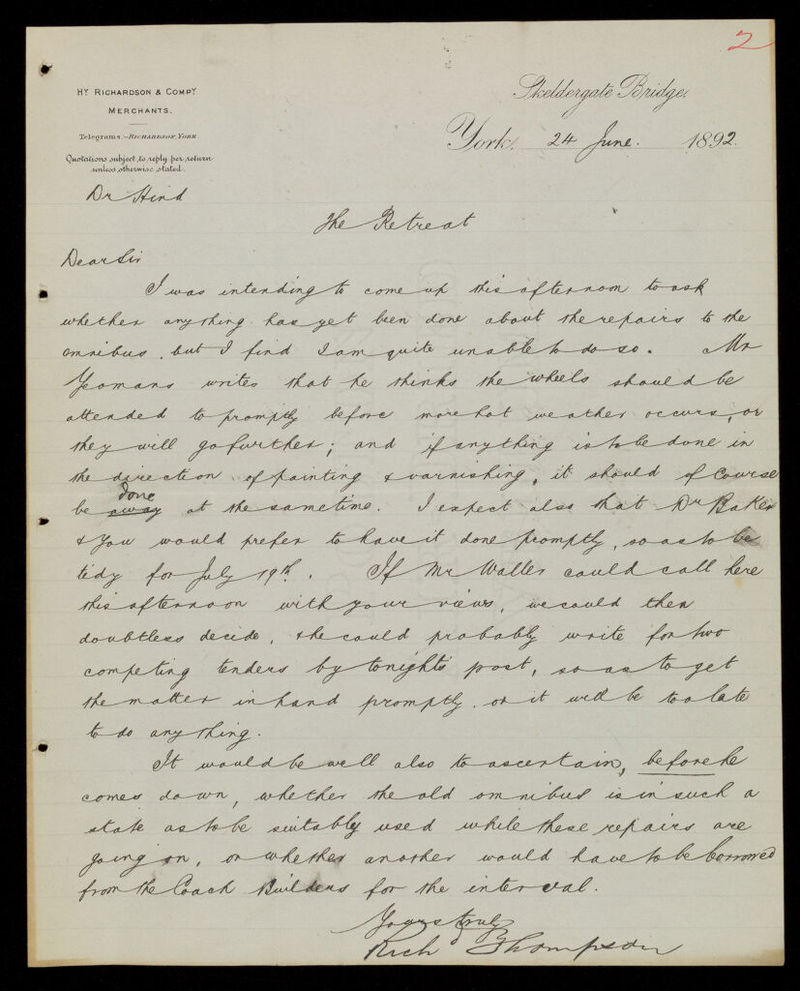 2
Hy. Richardson & Compy.
Merchants.
Telegrams:-Richardson, York.
Quotations subject to reply per return
unless otherwise stated.
Skeldergate Bridge,
York, 24 June. 1892.
Dr Hind
The Retreat
Dear Sir
I was intending to come up this afternoon to ask
whether anything has yet been done about the repairs to the
omnibus, but I find I am quite unable to do so. Mr
Yeomans writes that he thinks the wheels should be
attended to promptly before more hot weather occurs, or
they will go further; and if anything is to be done in
the direction of painting & varnishing, it should of course
be away done at the same time. I expect also that Dr Baker
& you would prefer to have it done promptly, so as to be
tidy for July 19th. If Mr Waller could call here
this afternoon with your views, we could then
doubtless decide, & he could probably write for two
competing tenders by tonights post, so as to get
the matter in hand promptly. or it will be too late
to do anything.
It would be well also to ascertain, before he
comes down, whether the old omnibus is in such a
state as to be suitably used while these repairs are
going on, or whether another would have to be borrowed
from the Coach Builders for the interval.
Yours truly
Rich Thompson